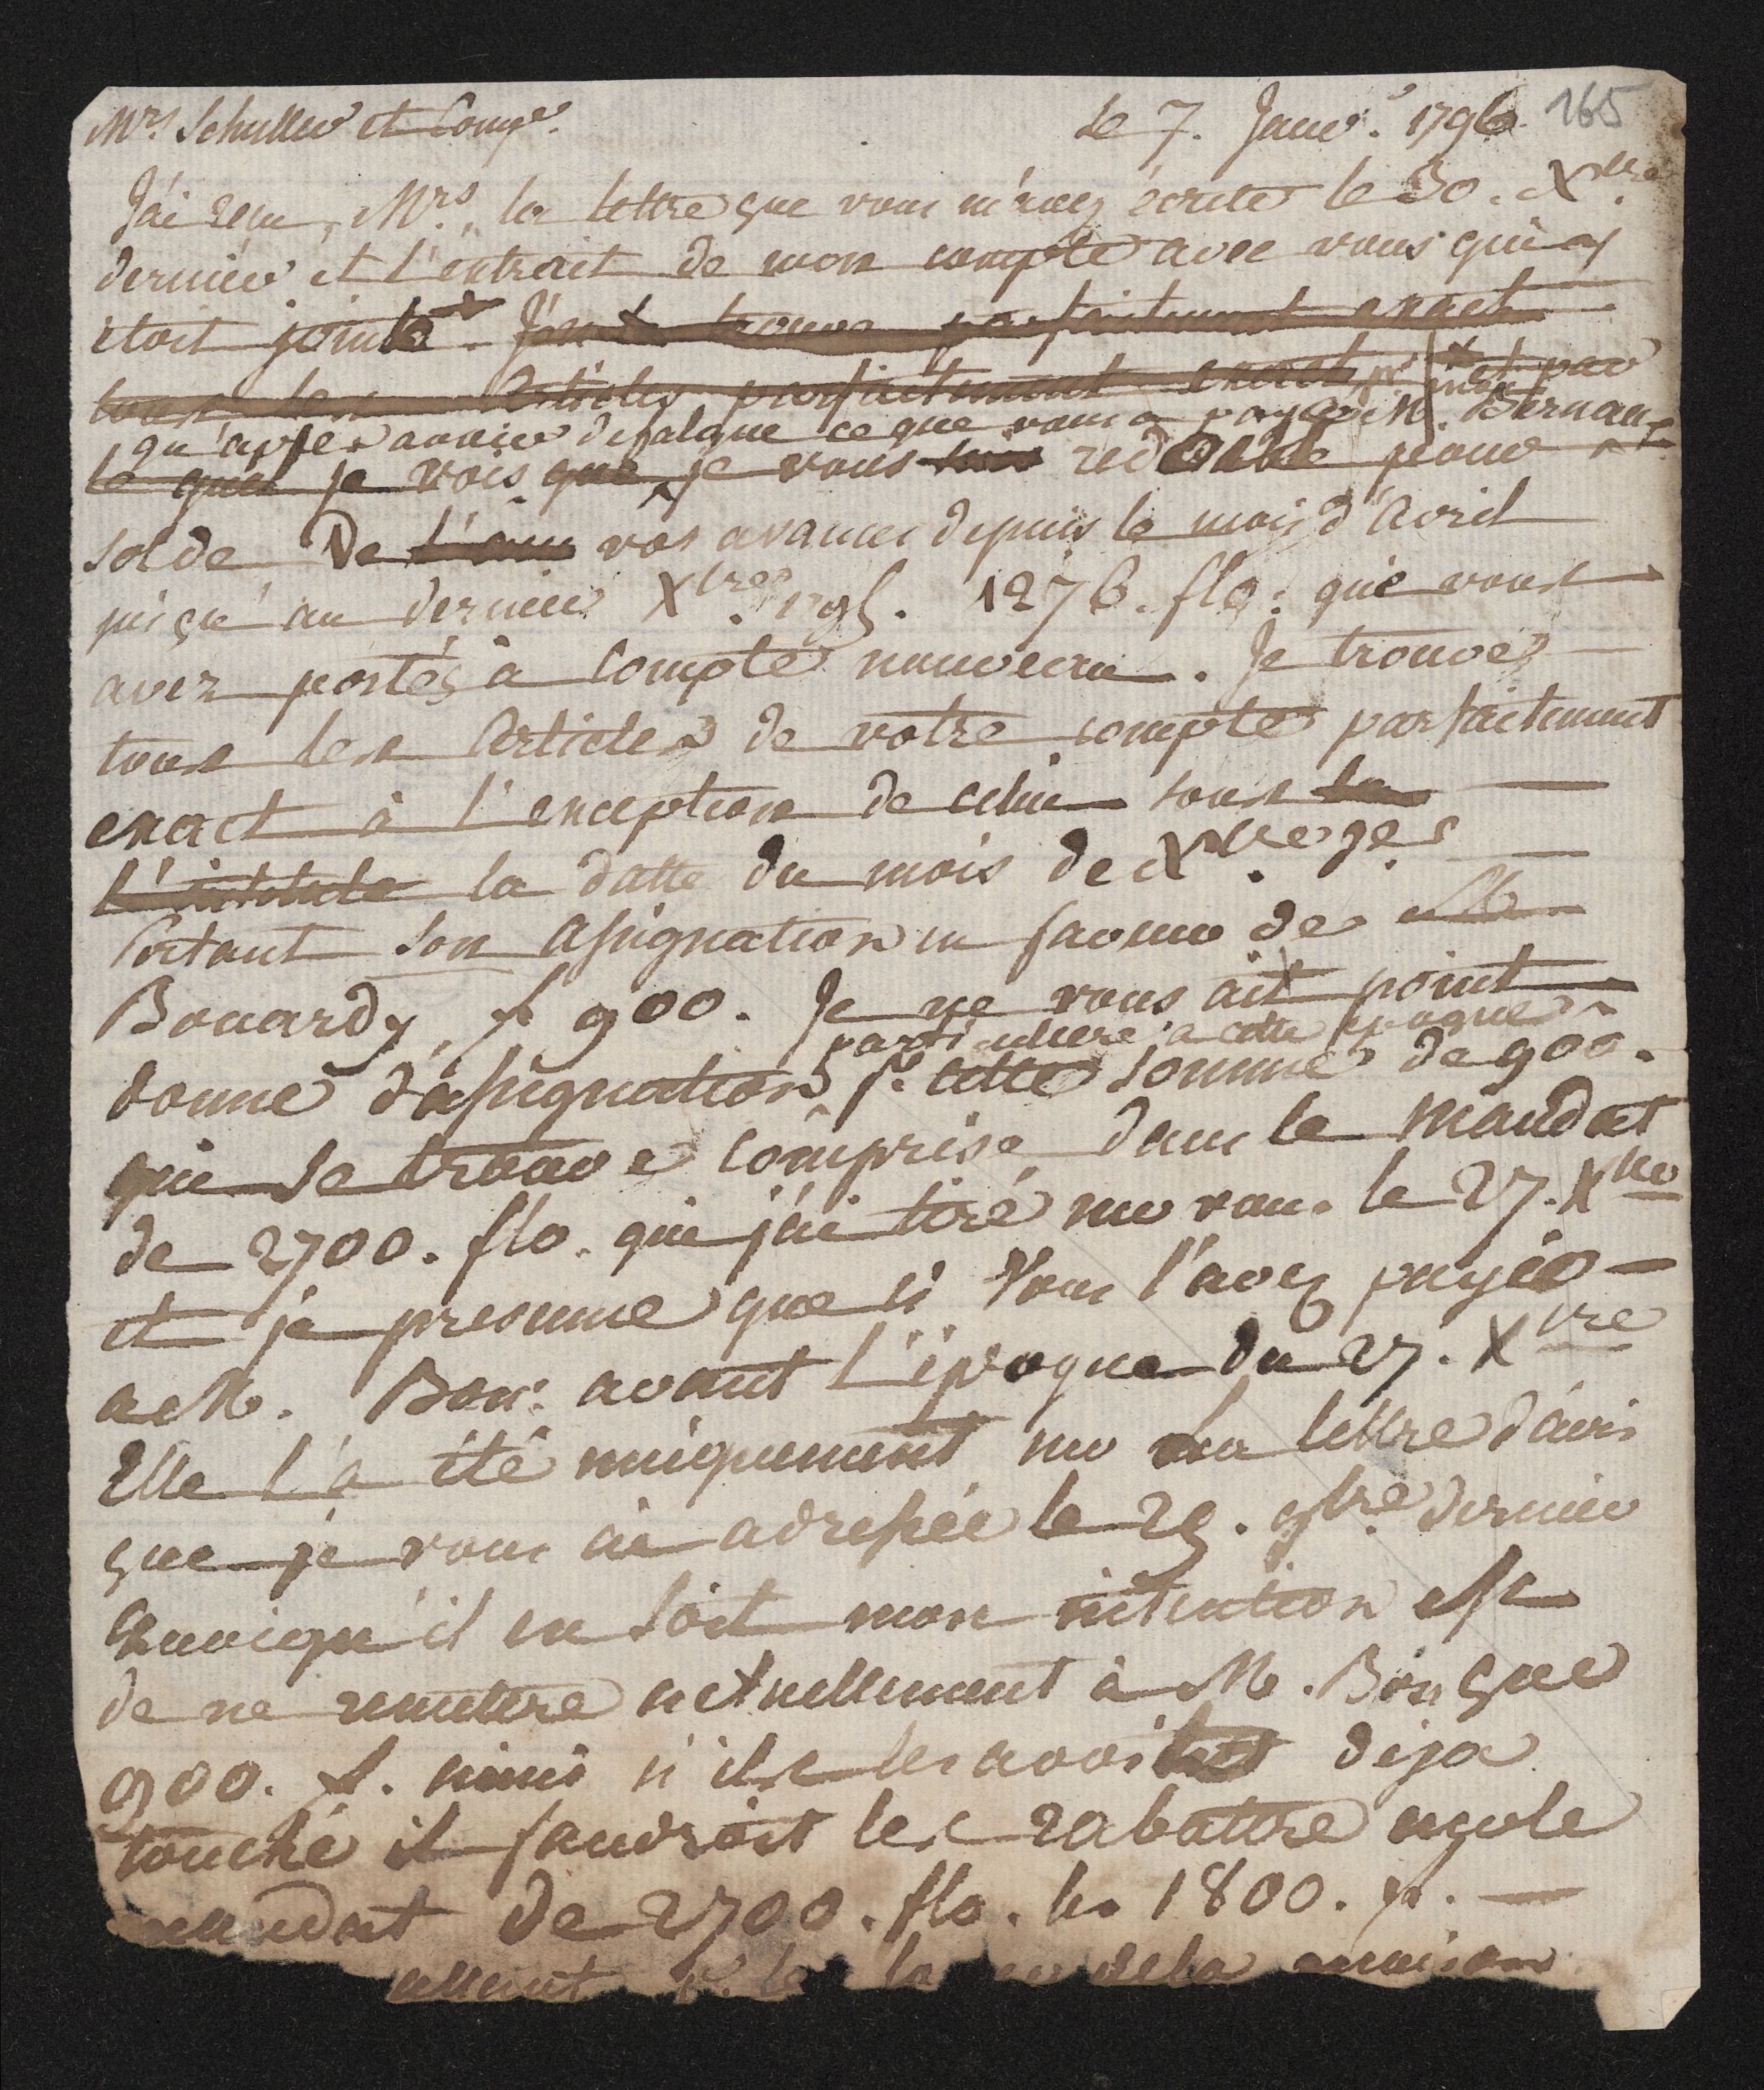 Mrs Schuller et Compe. Le 7. Janvr. 1796 165
J'ai reçu, Mrs., la lettre que vous m'avez écrite le 30. Xbre.
dernier et l'extrait de mon compte avec vous qui y
etoit joint. J'en trouve parfaitement exact
tous les Articles parfaitement exact et par
qu'après avoir defalqué ce que vous a payé M. Bernau
le quel je vois que je vous suis redevable pour
solde De l'an vos avances depuis le mois d'Avril
jusqu'au dernier Xbre. 1795. 1276. flo. que vous
avez portés à compte nouveau. Je trouve
tous les Articles de votre compte parfaitement
exact à l'exception de celui sous la
l'intitulé la datte du mois de Xbre 9e.
Portant son assignation en faveur de M.
Bouardy f 900. Je ne vous ait point
particuliere a cette epoque
donné d'assignation pr. cette somme de 900.
qui se trouve comprise dans le mandat
de 2700. flo. que j'ai tiré sur vous le 27. Xbre
et je presume que si Vous l'avez payée
a M. Bou. avant l'époque du 27. Xbre
Elle l'a été uniquement sur la lettre d'avis
que je vous ai adressée le 29. 9bre. dernier
Quoiqu'il en soit mon intention est
de ne remettre actuellement à M. Bou que
900. f. mais s'il les avoit deja
touché il faudroit les rabattre sur le
mandat de 2700. flo. les 1800. f.
allant pr. le de la maison